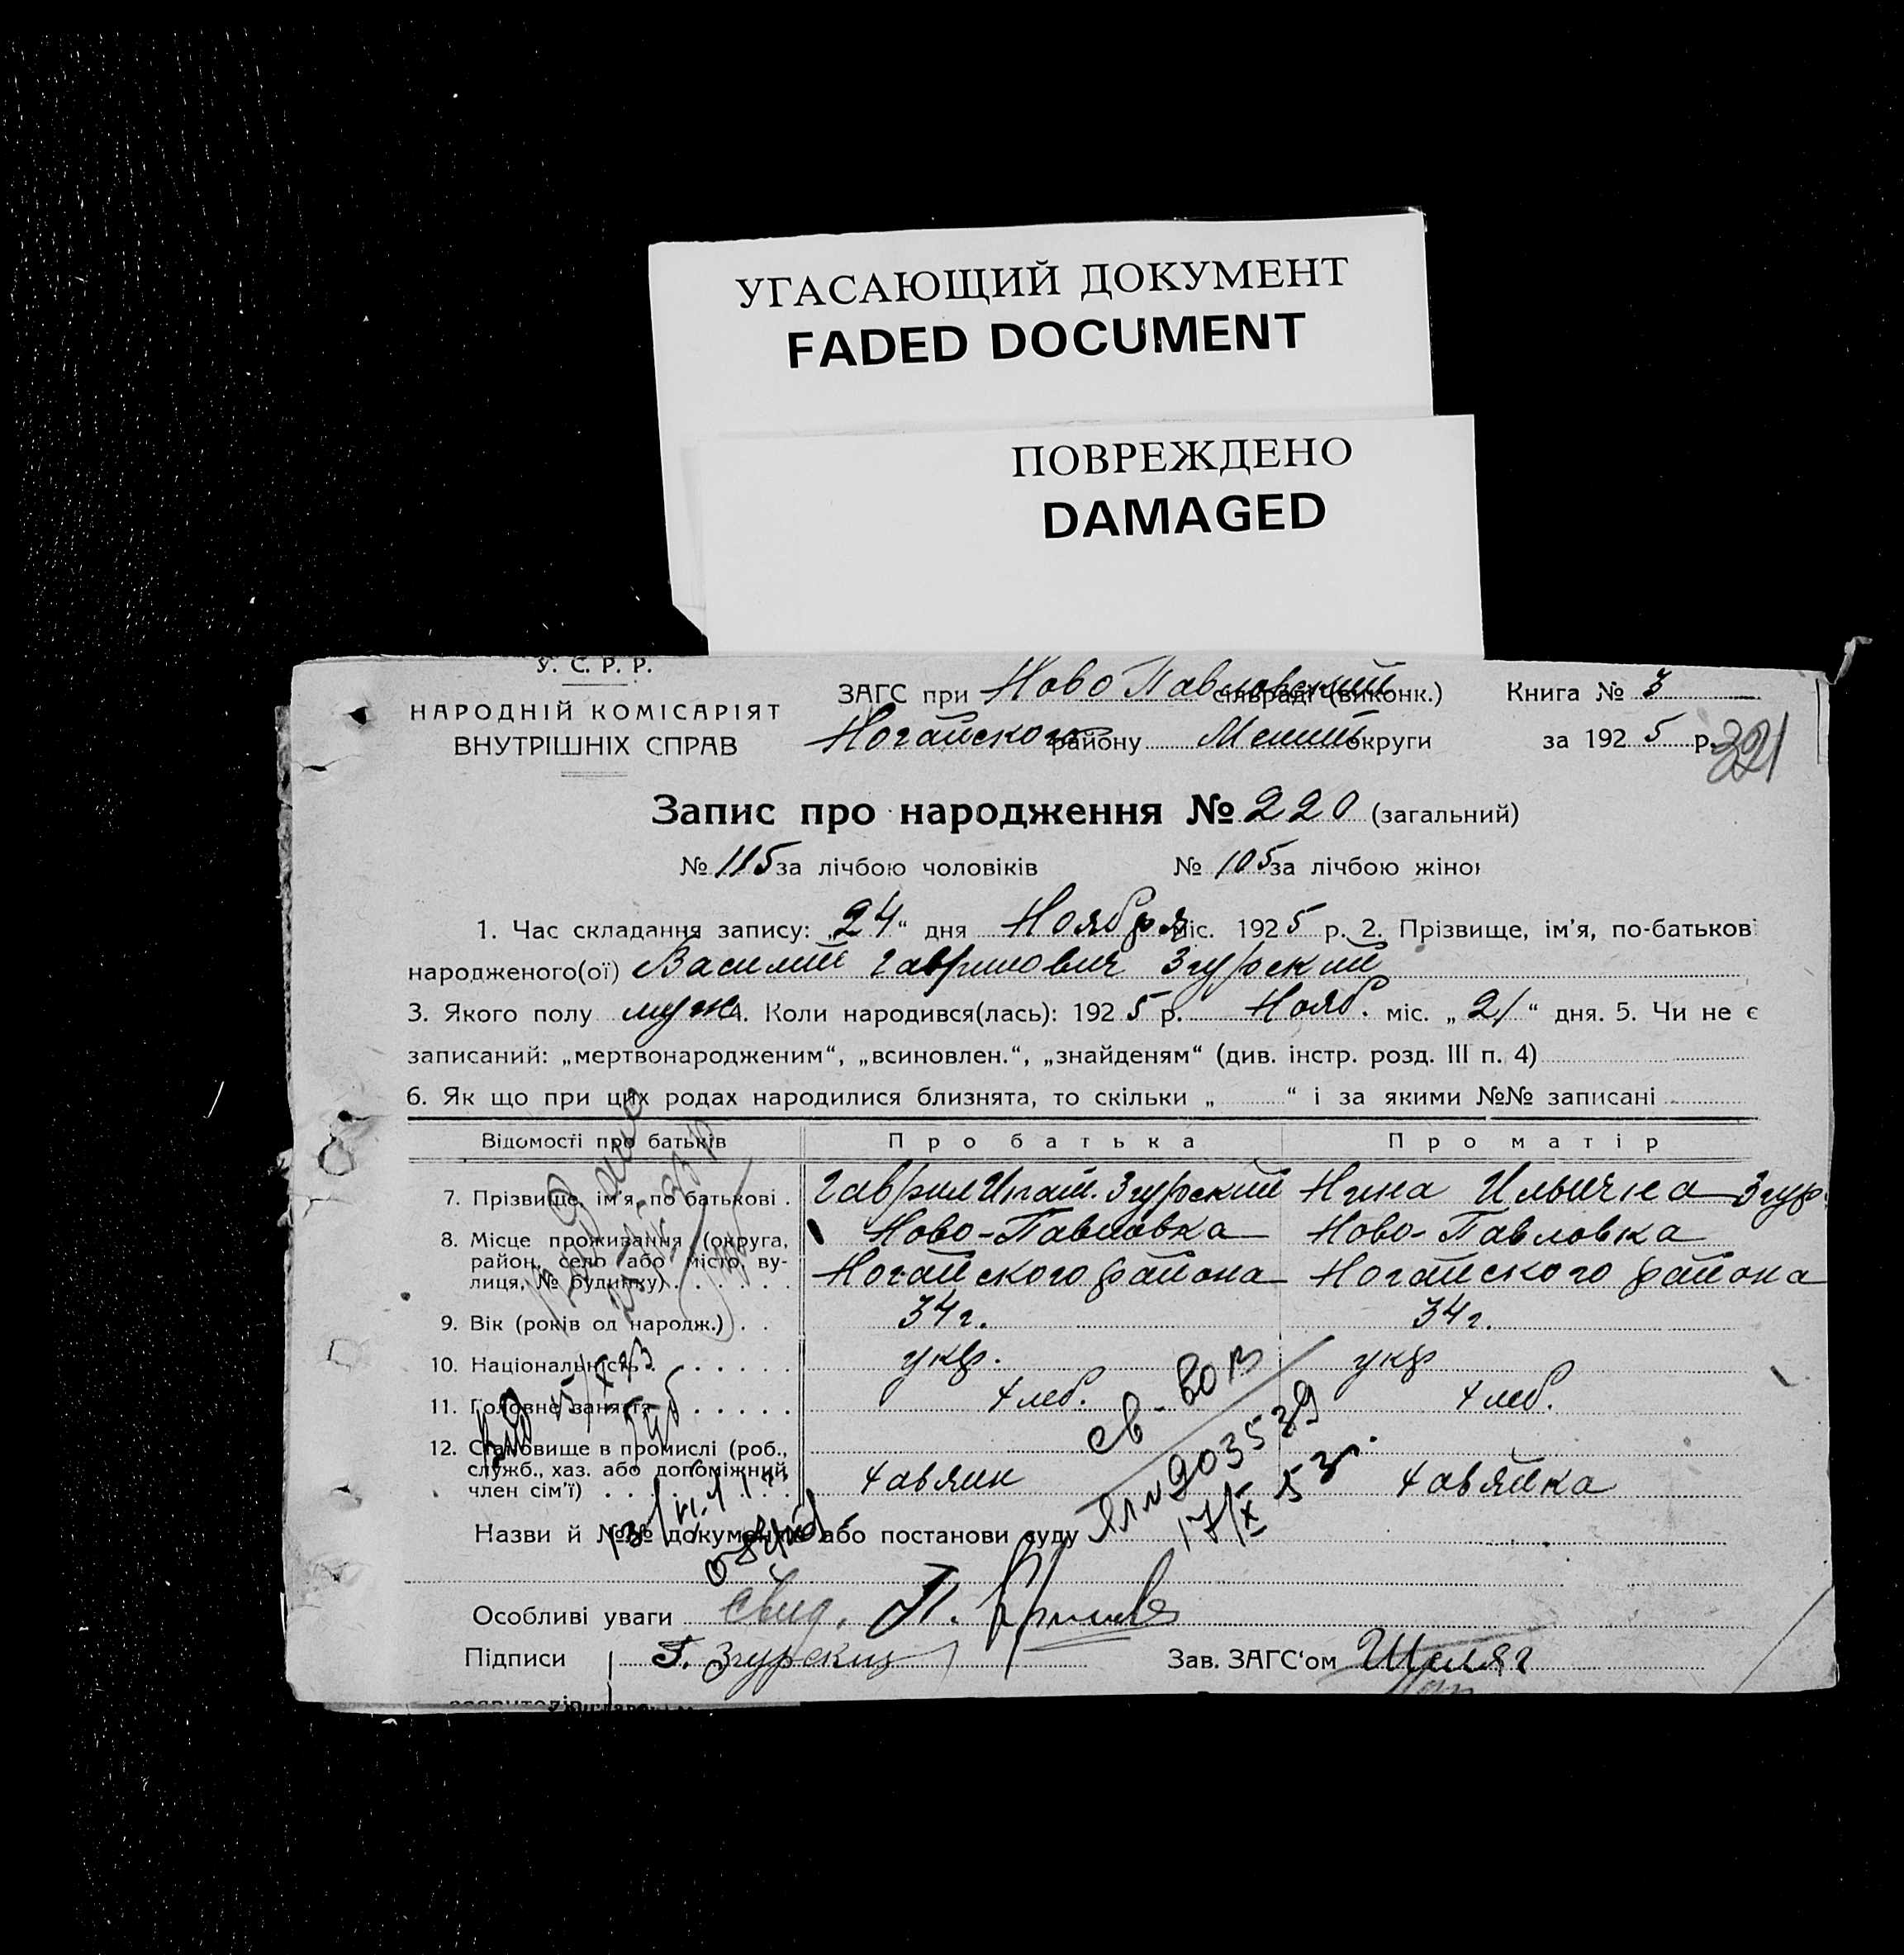 УГАСАЮЩИЙ ДОКУМЕНТ
FADED DOCUMENT
ПОВРЕЖДЕНО
DAMAGED
У. С. Р. Р.
НАРОДНІЙ КОМІСАРІЯТ
ВНУТРІШНІХ СПРАВ
ЗАГС при Ново Павловский сільраді (виконк.) Книга № 3
Ногайского району Мелит округи за 1925 р.
321
Запис про народження № 220 (загальний)
№ 115 за лічбою чоловіків № 105 за лічбою жінок
1. Час складання запису: „24“ дня Ноября міс. 1925 р. 2. Прізвище, ім’я, по-батькові
народженого(ої) Василий Гаврилович Згурский
3. Якого полу муж 4. Коли народився(лась): 1925 р. Нояб. міс. „21“ дня. 5. Чи не є
записаний: „мертвонародженим“, „всиновлен.“, „знайденям“ (див. інстр. розд. III п. 4)
6. Як що при цих родах народилися близнята, то скільки „ “ і за якими №№ записані
Відомості про батьків Про батька Про матір
7. Прізвище, ім’я, по батькові . Гаврил Игнат. Згурский Нина Ильична Згур.
8. Місце проживання (округа, Ново-Павловка Ново-Павловка
район, село або місто, ву-
лиця, № будинку) . . . . . Ногайского района Ногайского района
9. Вік (років од народж.) . . 34 г. 34 г.
10. Національність . . . . . . укр. укр
11. Головне заняття . . . . . хлеб. хлеб.
12. Становище в промислі (роб.,
служб., хаз. або допоміжний
член сім’ї) . . . . . . . хозяин хозяйка
св-во
ЯЛ № 903589
17/X 53 г.
Назви й №№ документів або постанови суду
Особливі уваги Свид.
Підписи Г. Згурский Зав. ЗАГС‘ом Шеляг
заявителів